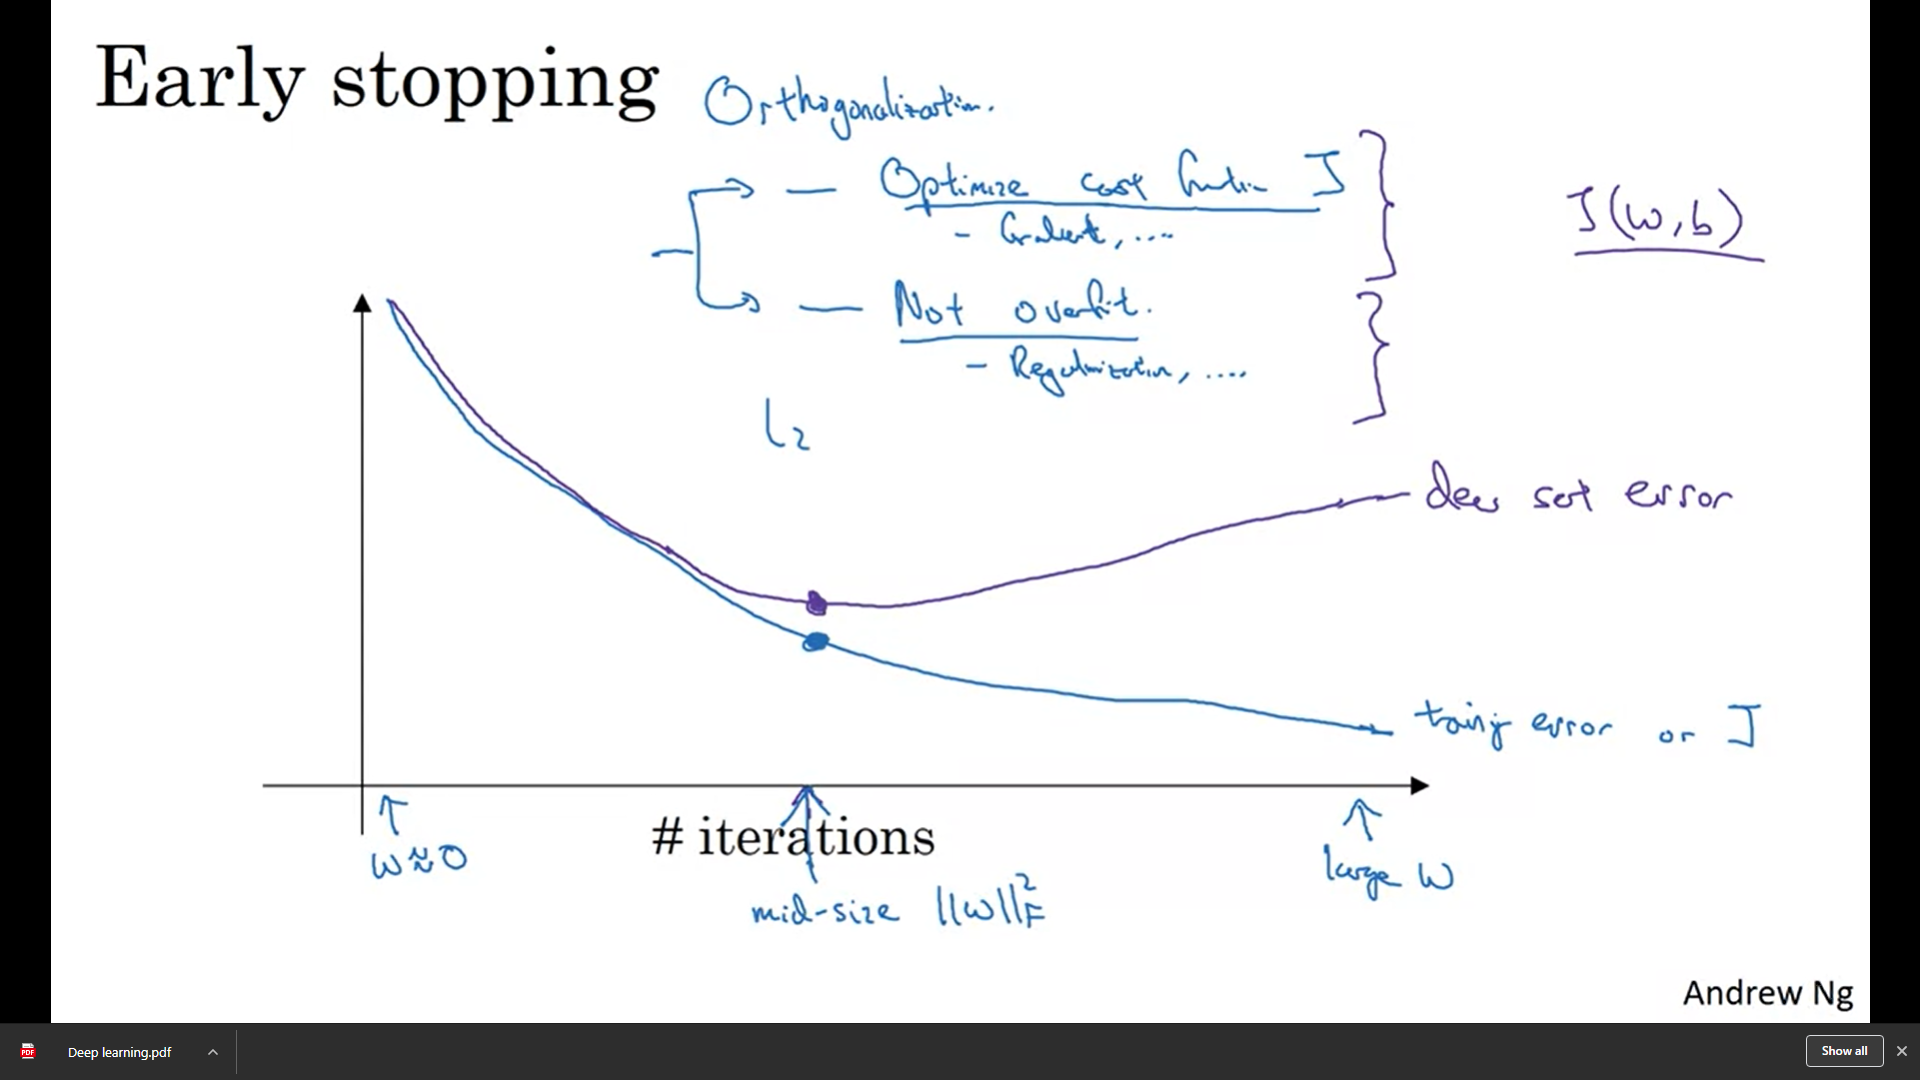 Early stopping
Orthogonalization.
— Optimize cost function J
- Gradient, ....
J(w,b)
— Not overfit.
- Regularization, ....
L2
dev set error
training error or J
# iterations
w≈0
large w
mid-size ||w||²F
Andrew Ng
Deep learning.pdf
Show all